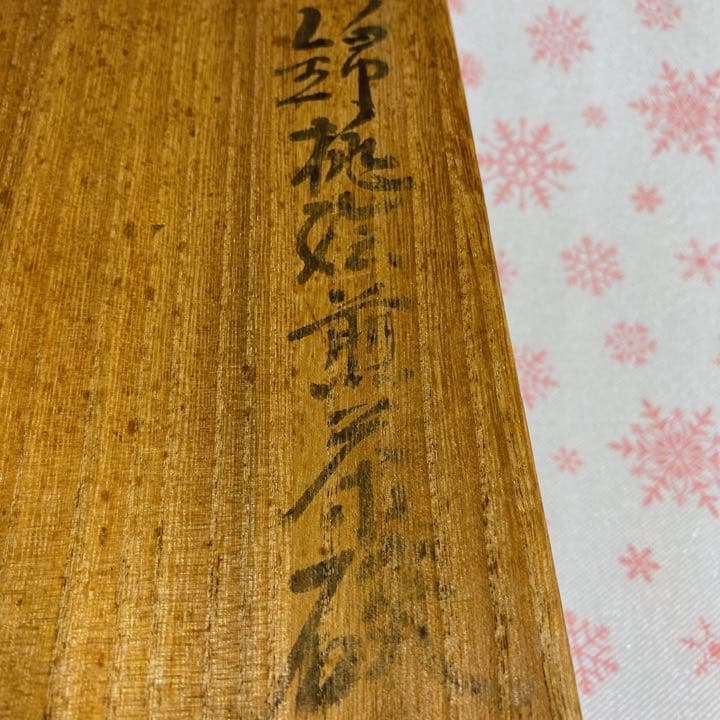 錦桃絵煎茶碗